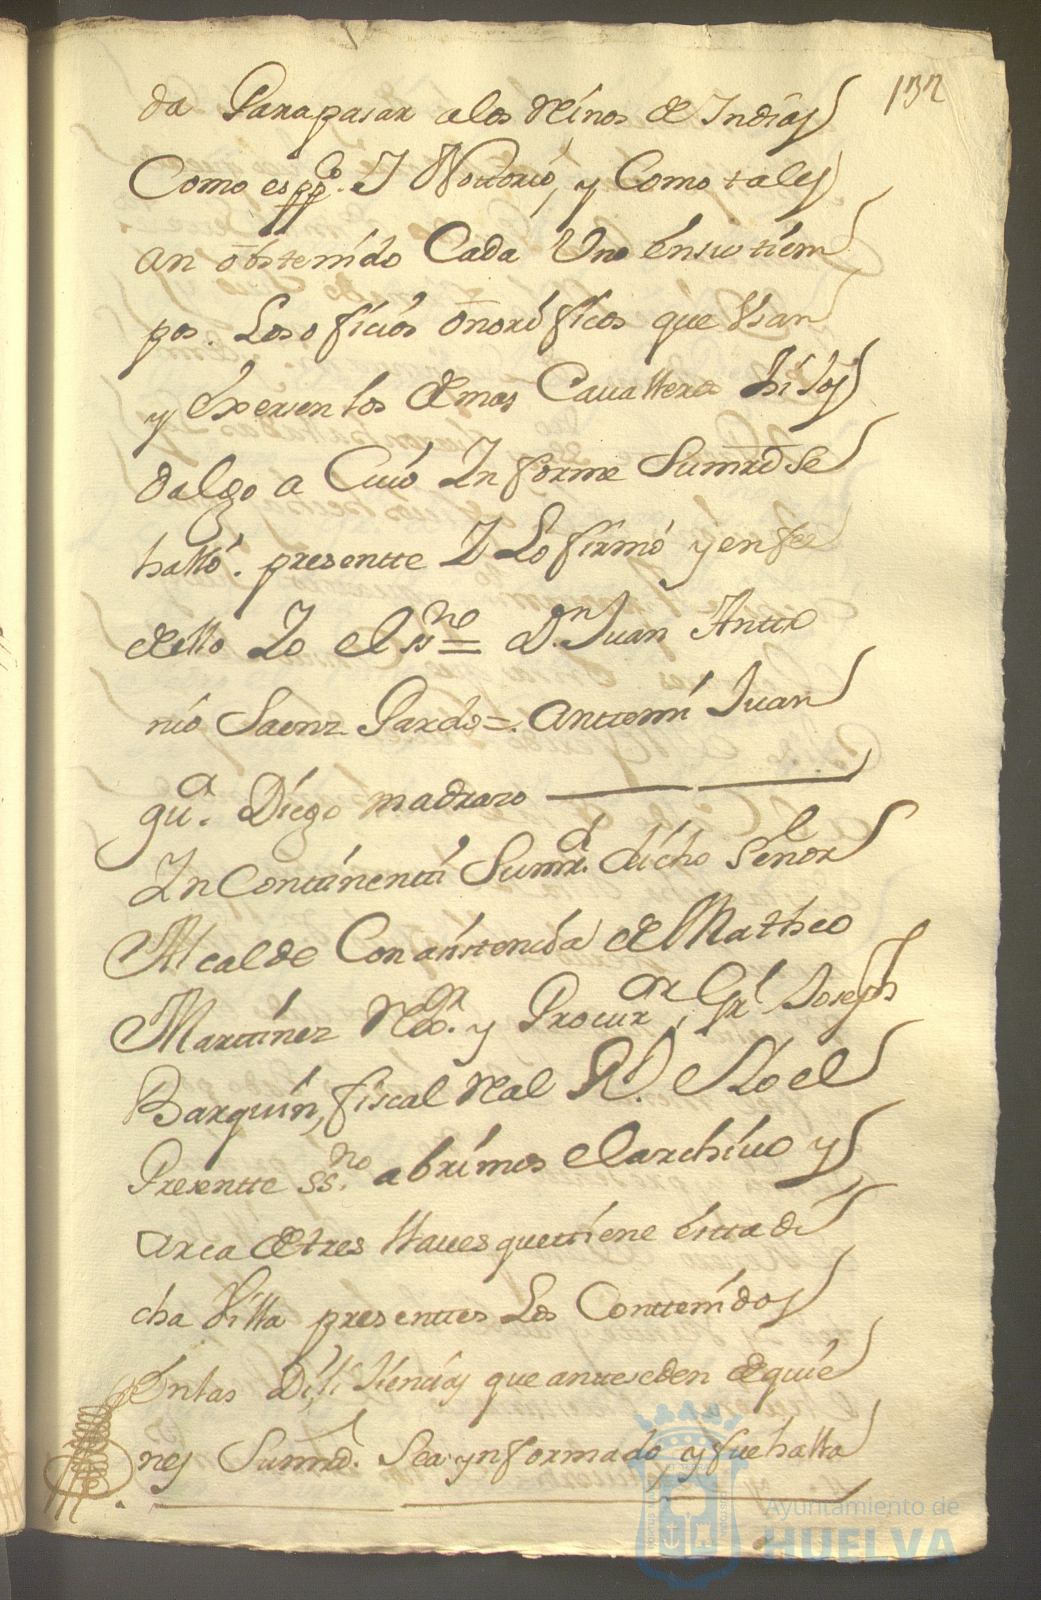 132
da Para pasar alos Reinos de Indias
Como es ppco. I Nottorio, y Como tales
an obstenido Cada Uno ensu tiem
pos. Los oficios onorificos que Usan
y Exersen los demas Cauallero hijos
dalgo a Cuio Informe Sumrd se
halló. presentte I Lo firmó y en fee
dello Io el ssno = Dn. Juan Antto
nio Saenz Pardo =. anttemi Juan
gua. Diego madrazo
In Conttinentti Sumrd. dicho Señor
Alcalde Con asistencia de Matheo
Martinez Rexor. y Procuror, Grl Joseph
Barquin, fiscal Real Io el
Presentte ssno. abrimos el archiuo y
arca de tres llaues que ttiene estta di
cha Villa presenttes Los Conttenidos
en las Dilijiencias que antteseden de quie
nes Sumrd. Sea ynformado, y fue halla
Ayuntamiento de
HUELVA